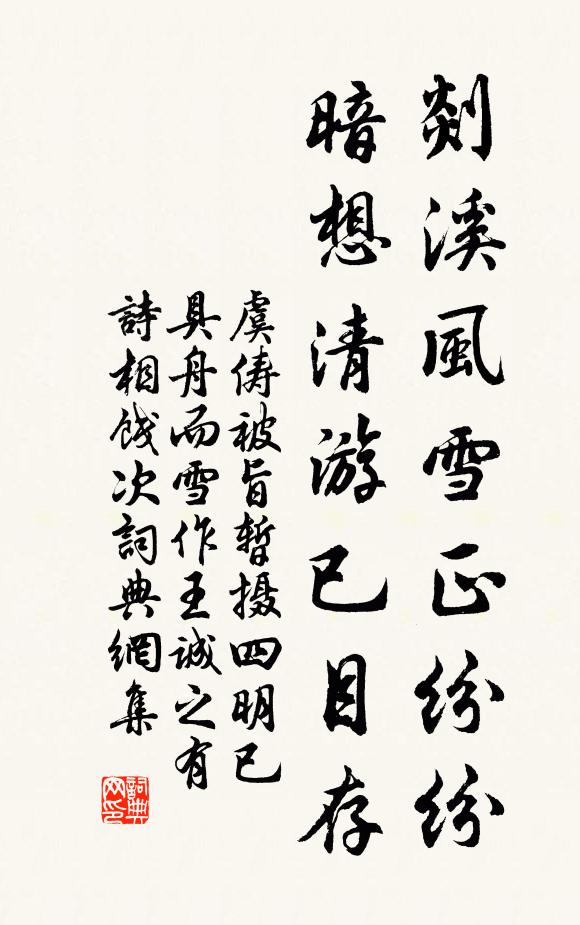 剡溪風雪正紛紛
暗想清游已目存
虞儔被旨暫摄四明已
具舟而雪作王誠之有
詩相餞次詞典網集
詞典网印